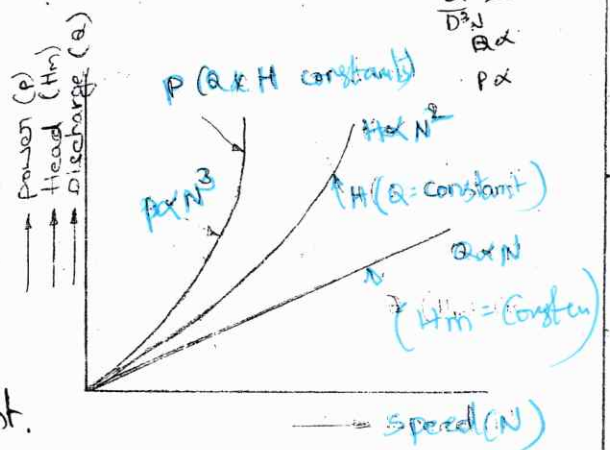 D³N
Q∝
P∝
Power (P)
Head (Hm)
Discharge (Q)
P (Q & H constants)
H∝N²
P∝N³
H (Q = constant)
Q∝N
(Hm = Consten)
st.
Speed (N)